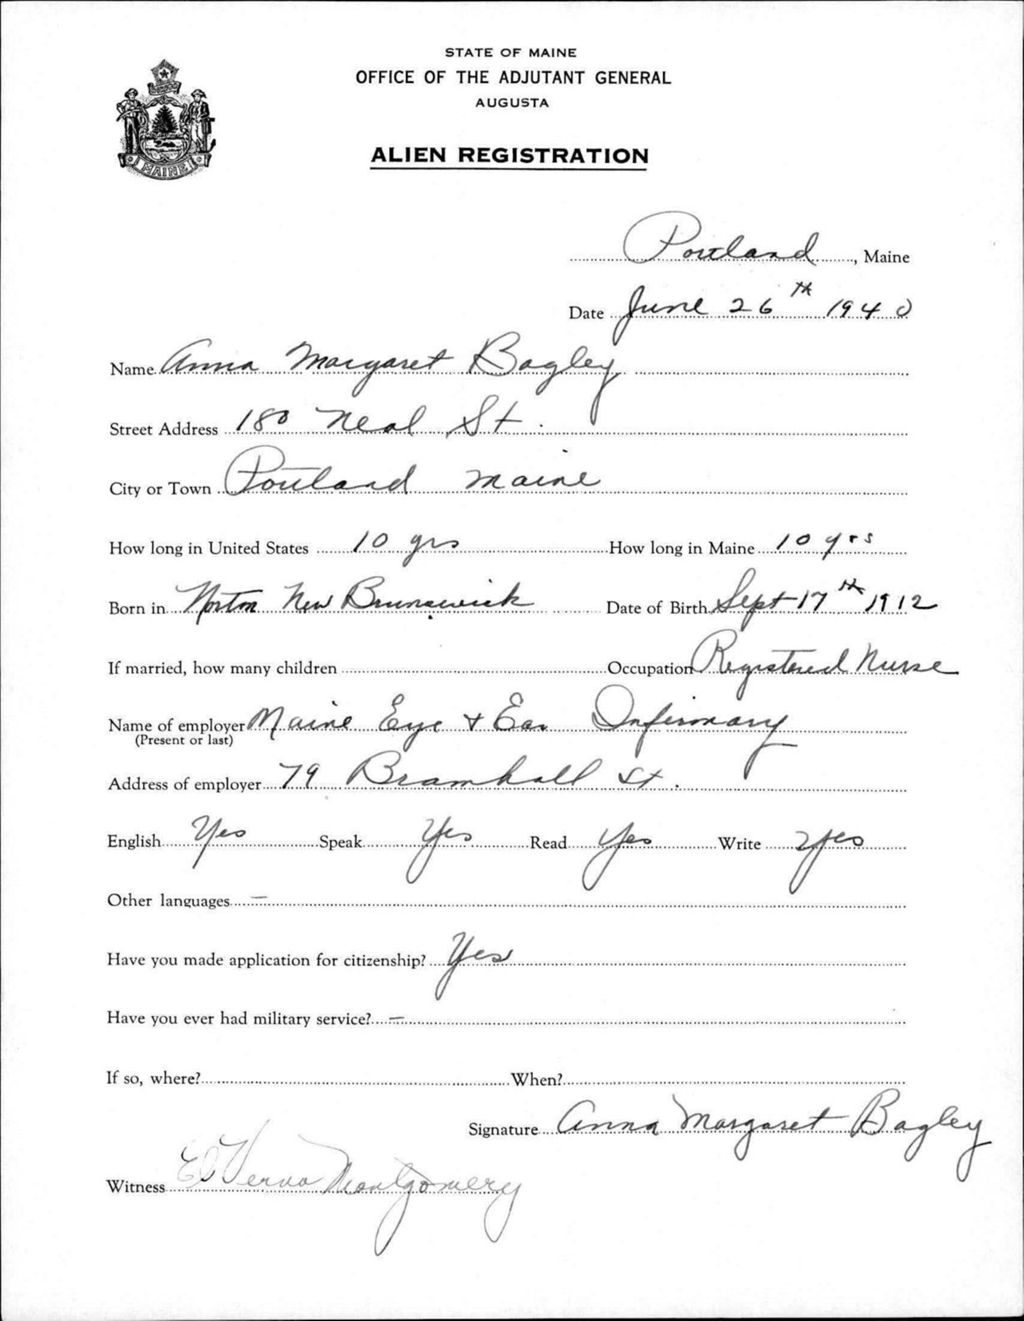 STATE OF MAINE
OFFICE OF THE ADJUTANT GENERAL
AUGUSTA
ALIEN REGISTRATION
MAINE
Portland, Maine
Date June 26th 1940
Name Anna Margaret Bagley
Street Address 180 Neal St.
City or Town Portland Maine
How long in United States 10 yrs How long in Maine 10 yrs
Born in Norton New Brunswick Date of Birth Sept 17th 1912
If married, how many children Occupation Registered Nurse
Name of employer Maine Eye + Ear Infirmary
(Present or last)
Address of employer 79 Bramhall St.
English Yes Speak Yes Read Yes Write Yes
Other languages —
Have you made application for citizenship? Yes
Have you ever had military service? —
If so, where? When?
Signature Anna Margaret Bagley
Witness Montgomery